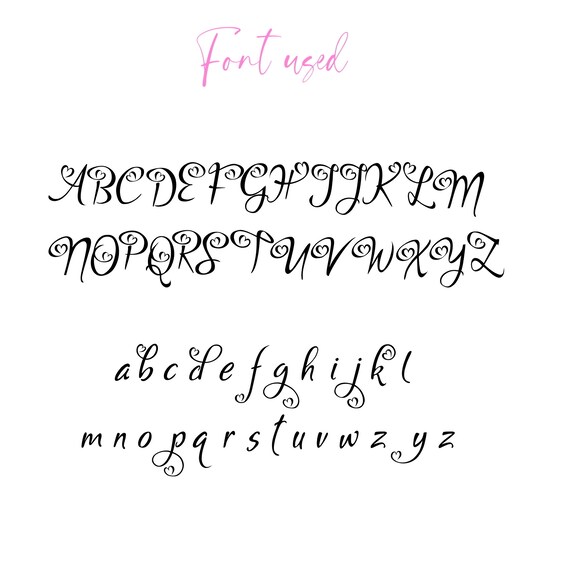 Font used
ABCDEFGHIJKLM
NOPQRSTUVWXYZ
a b c d e f g h i j k l
m n o p q r s t u v w z y z